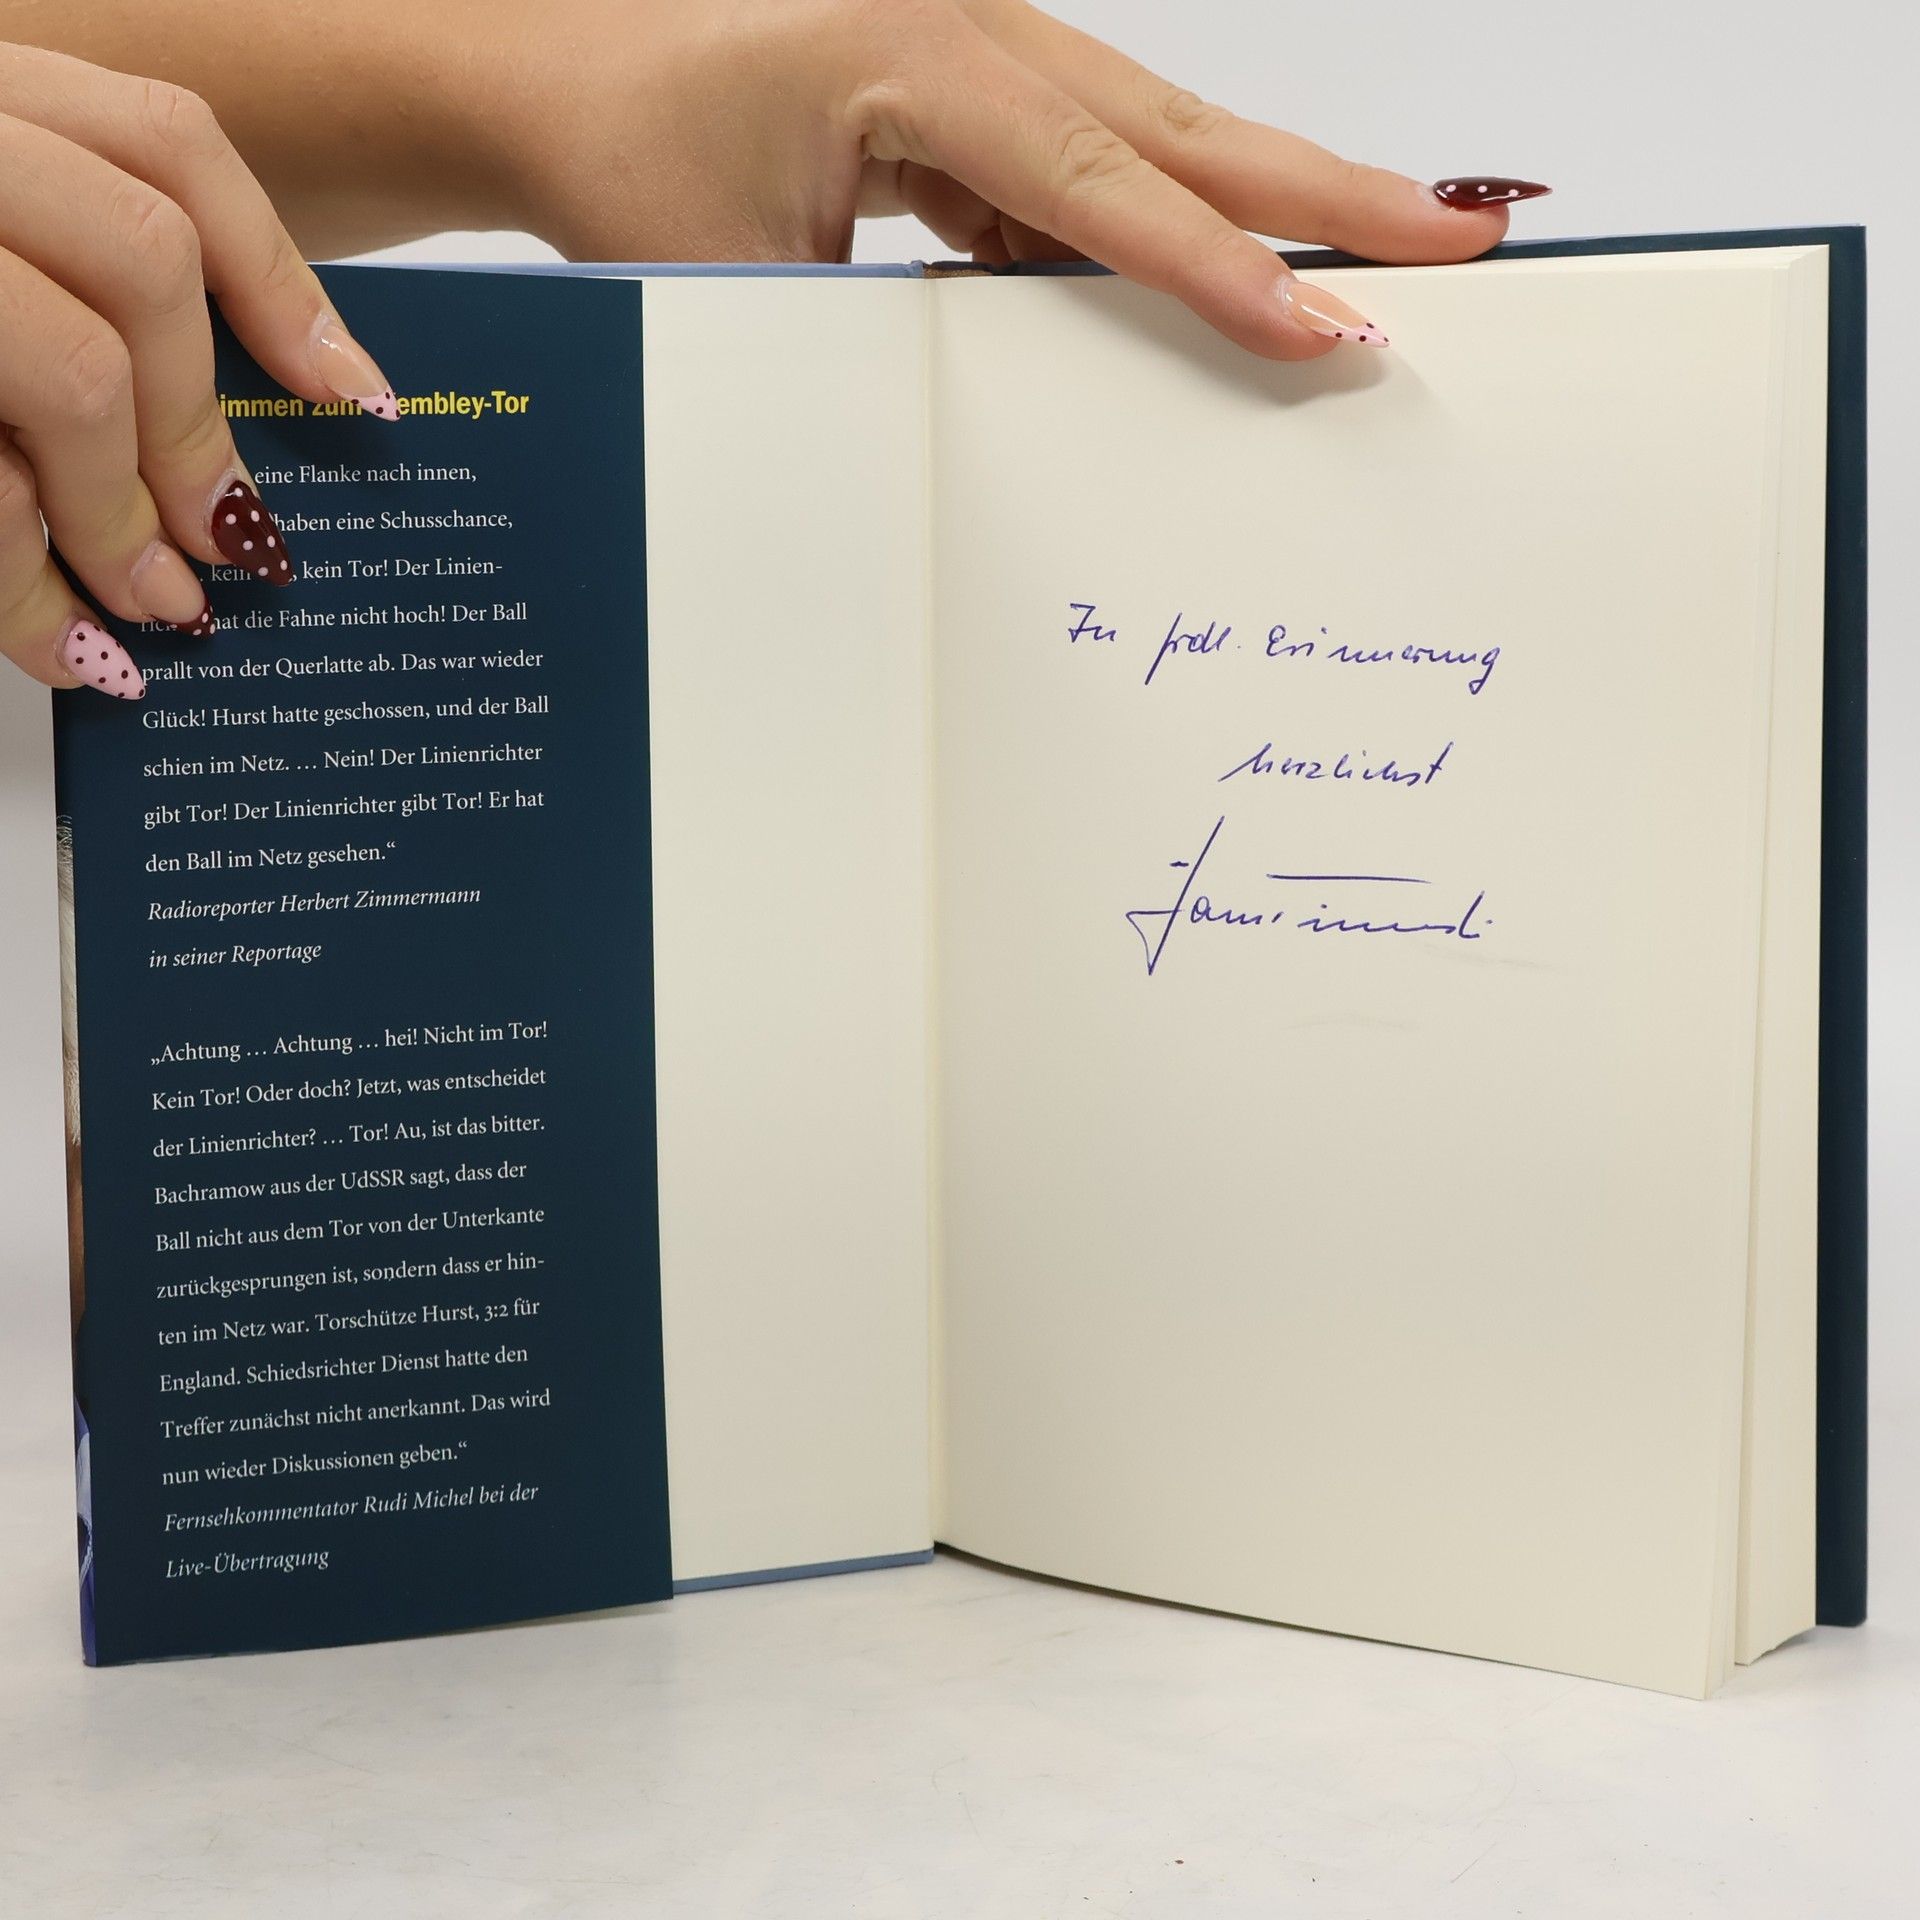 immen zum embley-Tor
eine Flanke nach innen,
haben eine Schusschance,
kein kein Tor! Der Linien-
hat die Fahne nicht hoch! Der Ball
prallt von der Querlatte ab. Das war wieder
Glück! Hurst hatte geschossen, und der Ball
schien im Netz. … Nein! Der Linienrichter
gibt Tor! Der Linienrichter gibt Tor! Er hat
den Ball im Netz gesehen.“
Radioreporter Herbert Zimmermann
in seiner Reportage
„Achtung … Achtung … hei! Nicht im Tor!
Kein Tor! Oder doch? Jetzt, was entscheidet
der Linienrichter? … Tor! Au, ist das bitter.
Bachramow aus der UdSSR sagt, dass der
Ball nicht aus dem Tor von der Unterkante
zurückgesprungen ist, sondern dass er hin-
ten im Netz war. Torschütze Hurst, 3:2 für
England. Schiedsrichter Dienst hatte den
Treffer zunächst nicht anerkannt. Das wird
nun wieder Diskussionen geben.“
Fernsehkommentator Rudi Michel bei der
Live-Übertragung
In frdl. Erinnerung
herzlichst